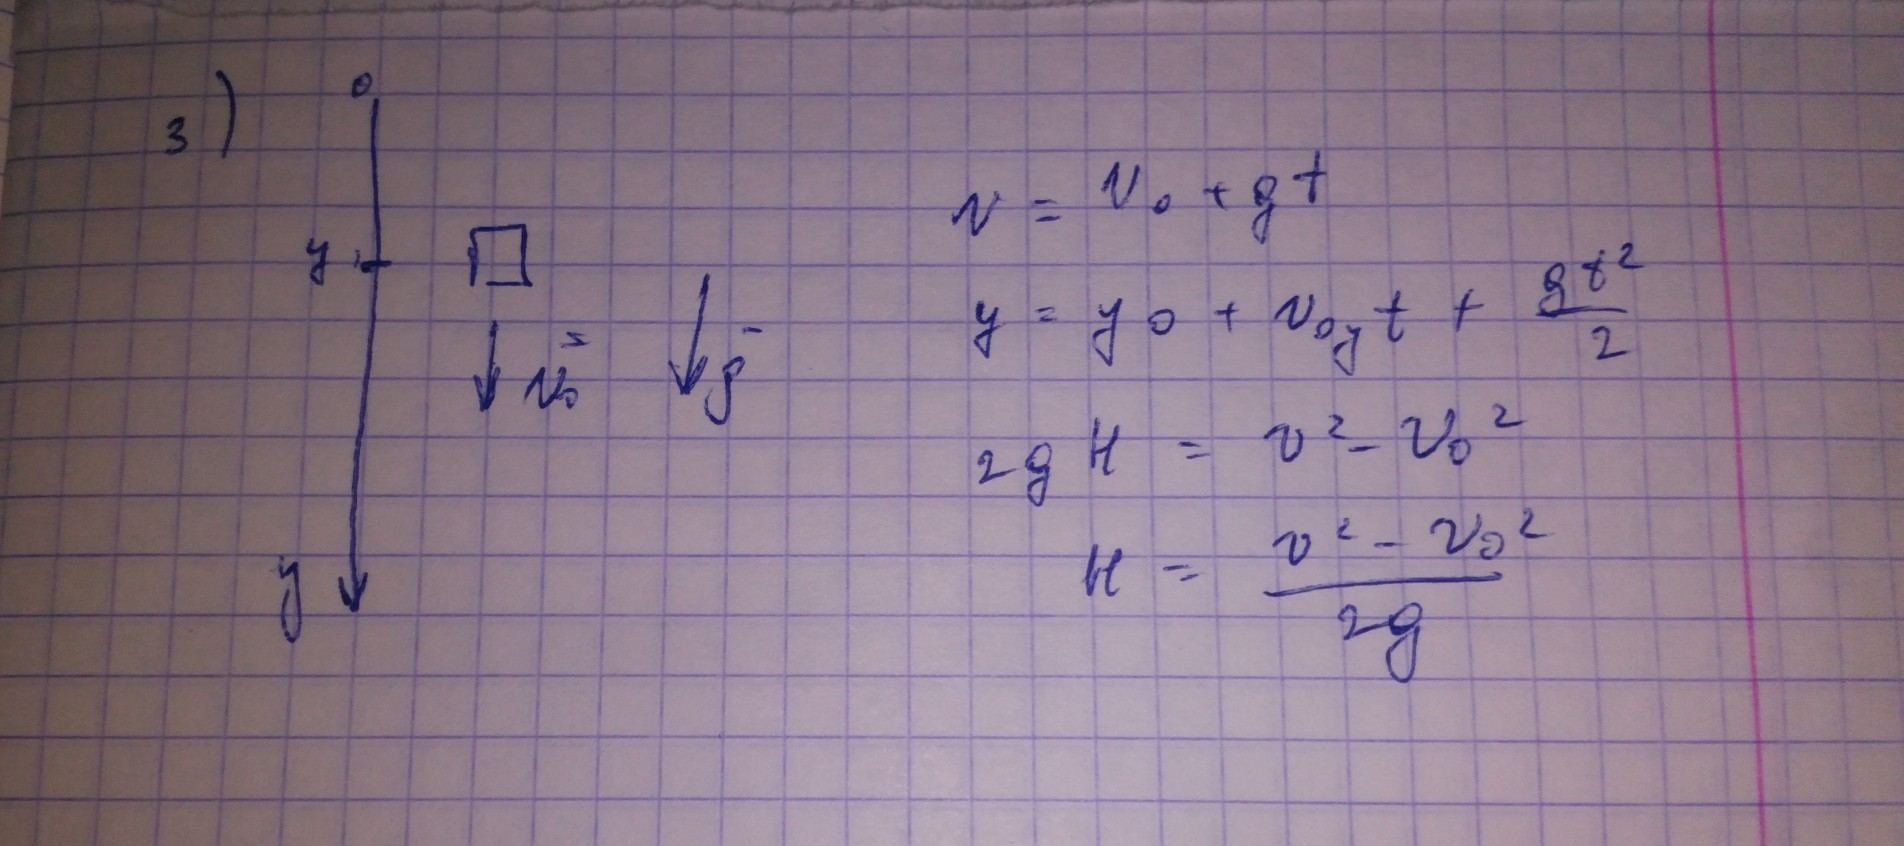 3)
0
y
v₀
g
y
v = v₀ + gt
y = y0 + v₀yt + gt²/2
2gH = v² - v₀²
H = v² - v₀²/2g